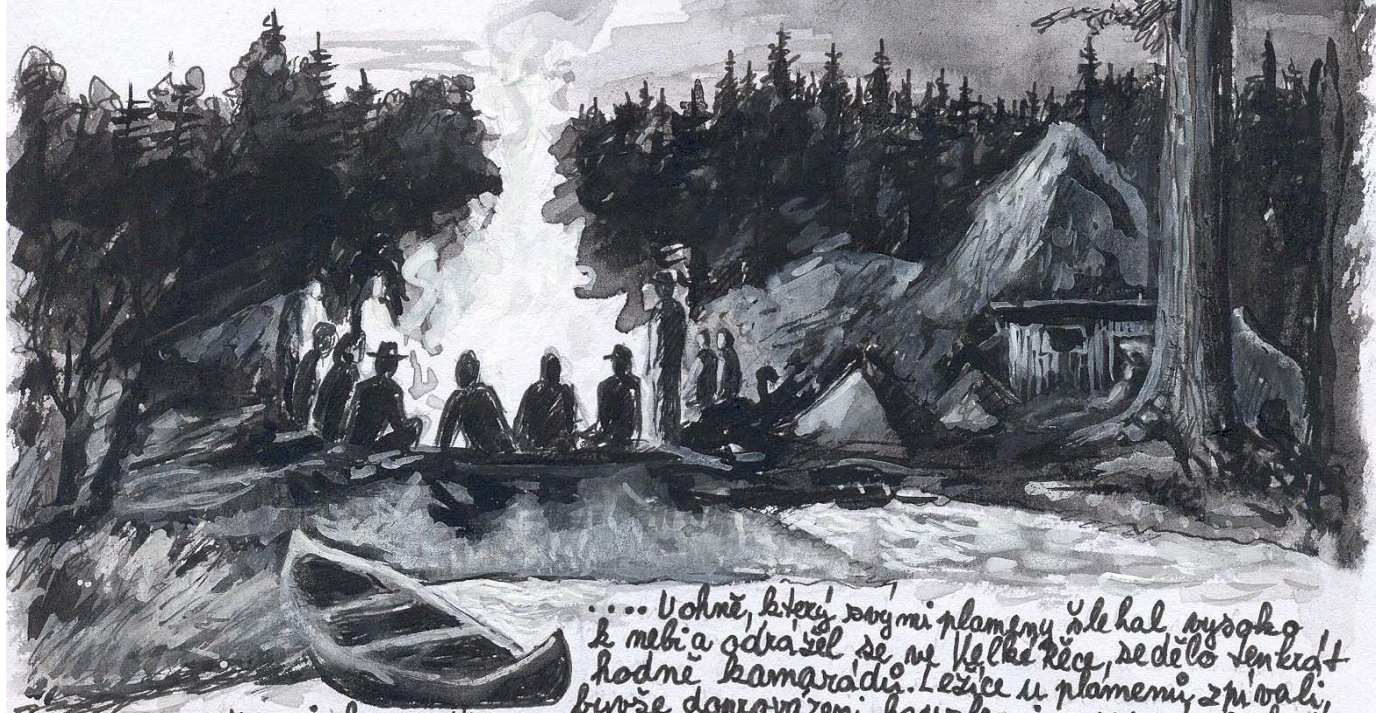 .... U ohně, který svými plameny šlehal vysoko
k nebi a odrážel se ve Velké řece, sedělo tenkrát
hodně kamarádů. Ležíce u plamenů, zpívali,